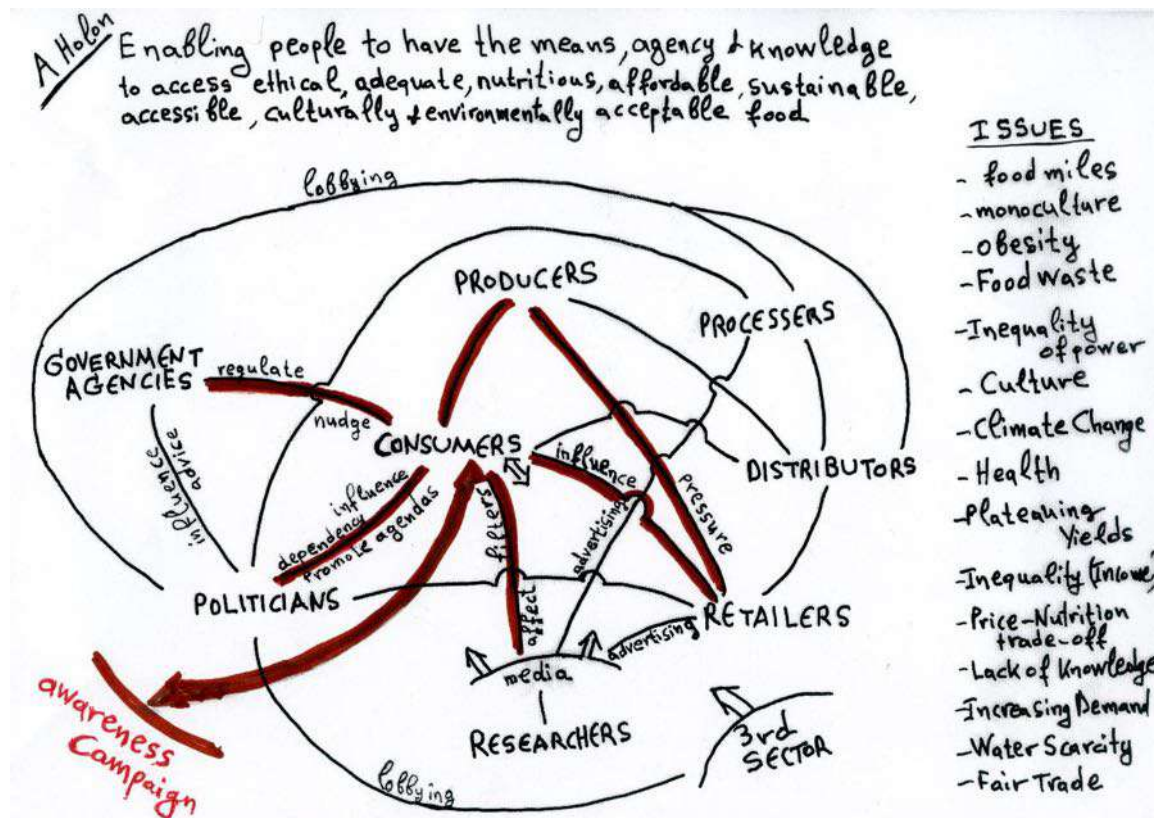 A Holon
Enabling people to have the means, agency & knowledge
to access ethical, adequate, nutritious, affordable, sustainable,
accessible, culturally & environmentally acceptable food
lobbying
PRODUCERS
PROCESSERS
GOVERNMENT
AGENCIES
regulate
nudge
CONSUMERS
influence
DISTRIBUTORS
influence
advice
influence
dependency
promote agendas
filters
affect
advertising
pressure
POLITICIANS
RETAILERS
advertising
media
RESEARCHERS
3rd
SECTOR
lobbying
awareness
Campaign
ISSUES
- food miles
- monoculture
- obesity
- Food Waste
- Inequality
of power
- Culture
- Climate Change
- Health
- Plateauing
Yields
- Inequality (Income)
- Price-Nutrition
trade-off
- Lack of Knowledge
- Increasing Demand
- Water Scarcity
- Fair Trade